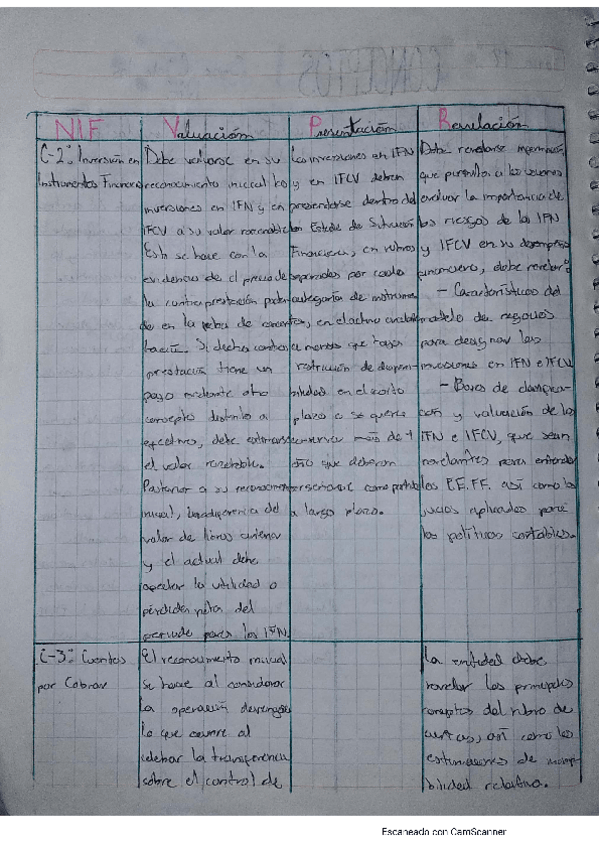 CONCEPTOS
NIF
Valuación
Presentación
Revelación
C-2: Inversión en
Instrumentos Financieros
Debe valuarse en su
reconocimiento inicial
inversiones en IFN y en
IFCV a su valor razonable
Esto se hace con la
evidencia de el precio de
la contraprestación
en la fecha de
Si dicha
prestación tiene un
pago mediante otro
concepto distinto a
efectivo, debe estimarse
el valor razonable.
Posterior a su reconocimiento
inicial, la diferencia del
valor de libros anterior
y el actual debe
afectar la utilidad o
pérdida neta del
periodo para los IFN.
Las inversiones en IFN
y en IFCV deben
presentarse dentro del
Estado de Situación
Financiera, en rubros
separados por cada
categoría de
en el activo circulante
a menos que tenga
restricción de
en el corto
plazo o se quiera
conservar más de 1
año que deberán
presentarse como partida
a largo plazo.
Debe revelarse información
que permita a los usuarios
evaluar la importancia de
los riesgos de los IFN
y IFCV en su desempeño
financiero, debe revelar:
- Características del
modelo de negocios
para designar las
inversiones en IFN e IFCV
- Bases de clasifica-
ción y valuación de los
IFN e IFCV, que sean
relevantes para entender
los EE.FF. así como los
juicios aplicados para
las políticas contables.
C-3: Cuentas
por Cobrar
El reconocimiento inicial
se hace al considerar
la operación
lo que ocurre al
celebrar la transferencia
sobre el control de
La entidad debe
revelar los principales
conceptos del rubro de
así como las
estimaciones de incobra-
bilidad relativa.
Escaneado con CamScanner